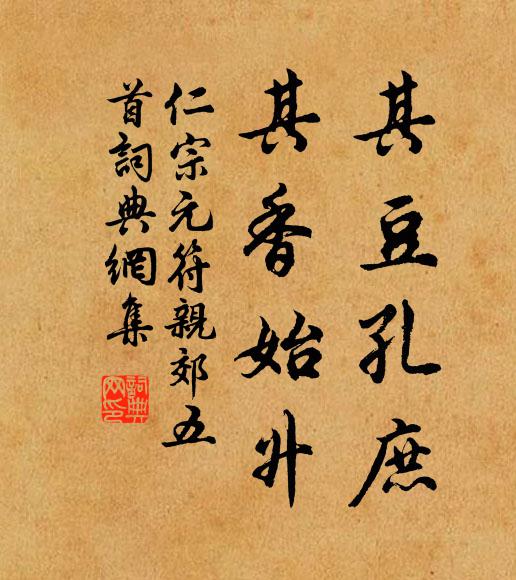 其豆孔庶
其香始升
仁宗元符親郊五
首詞典網集
詞典
网印